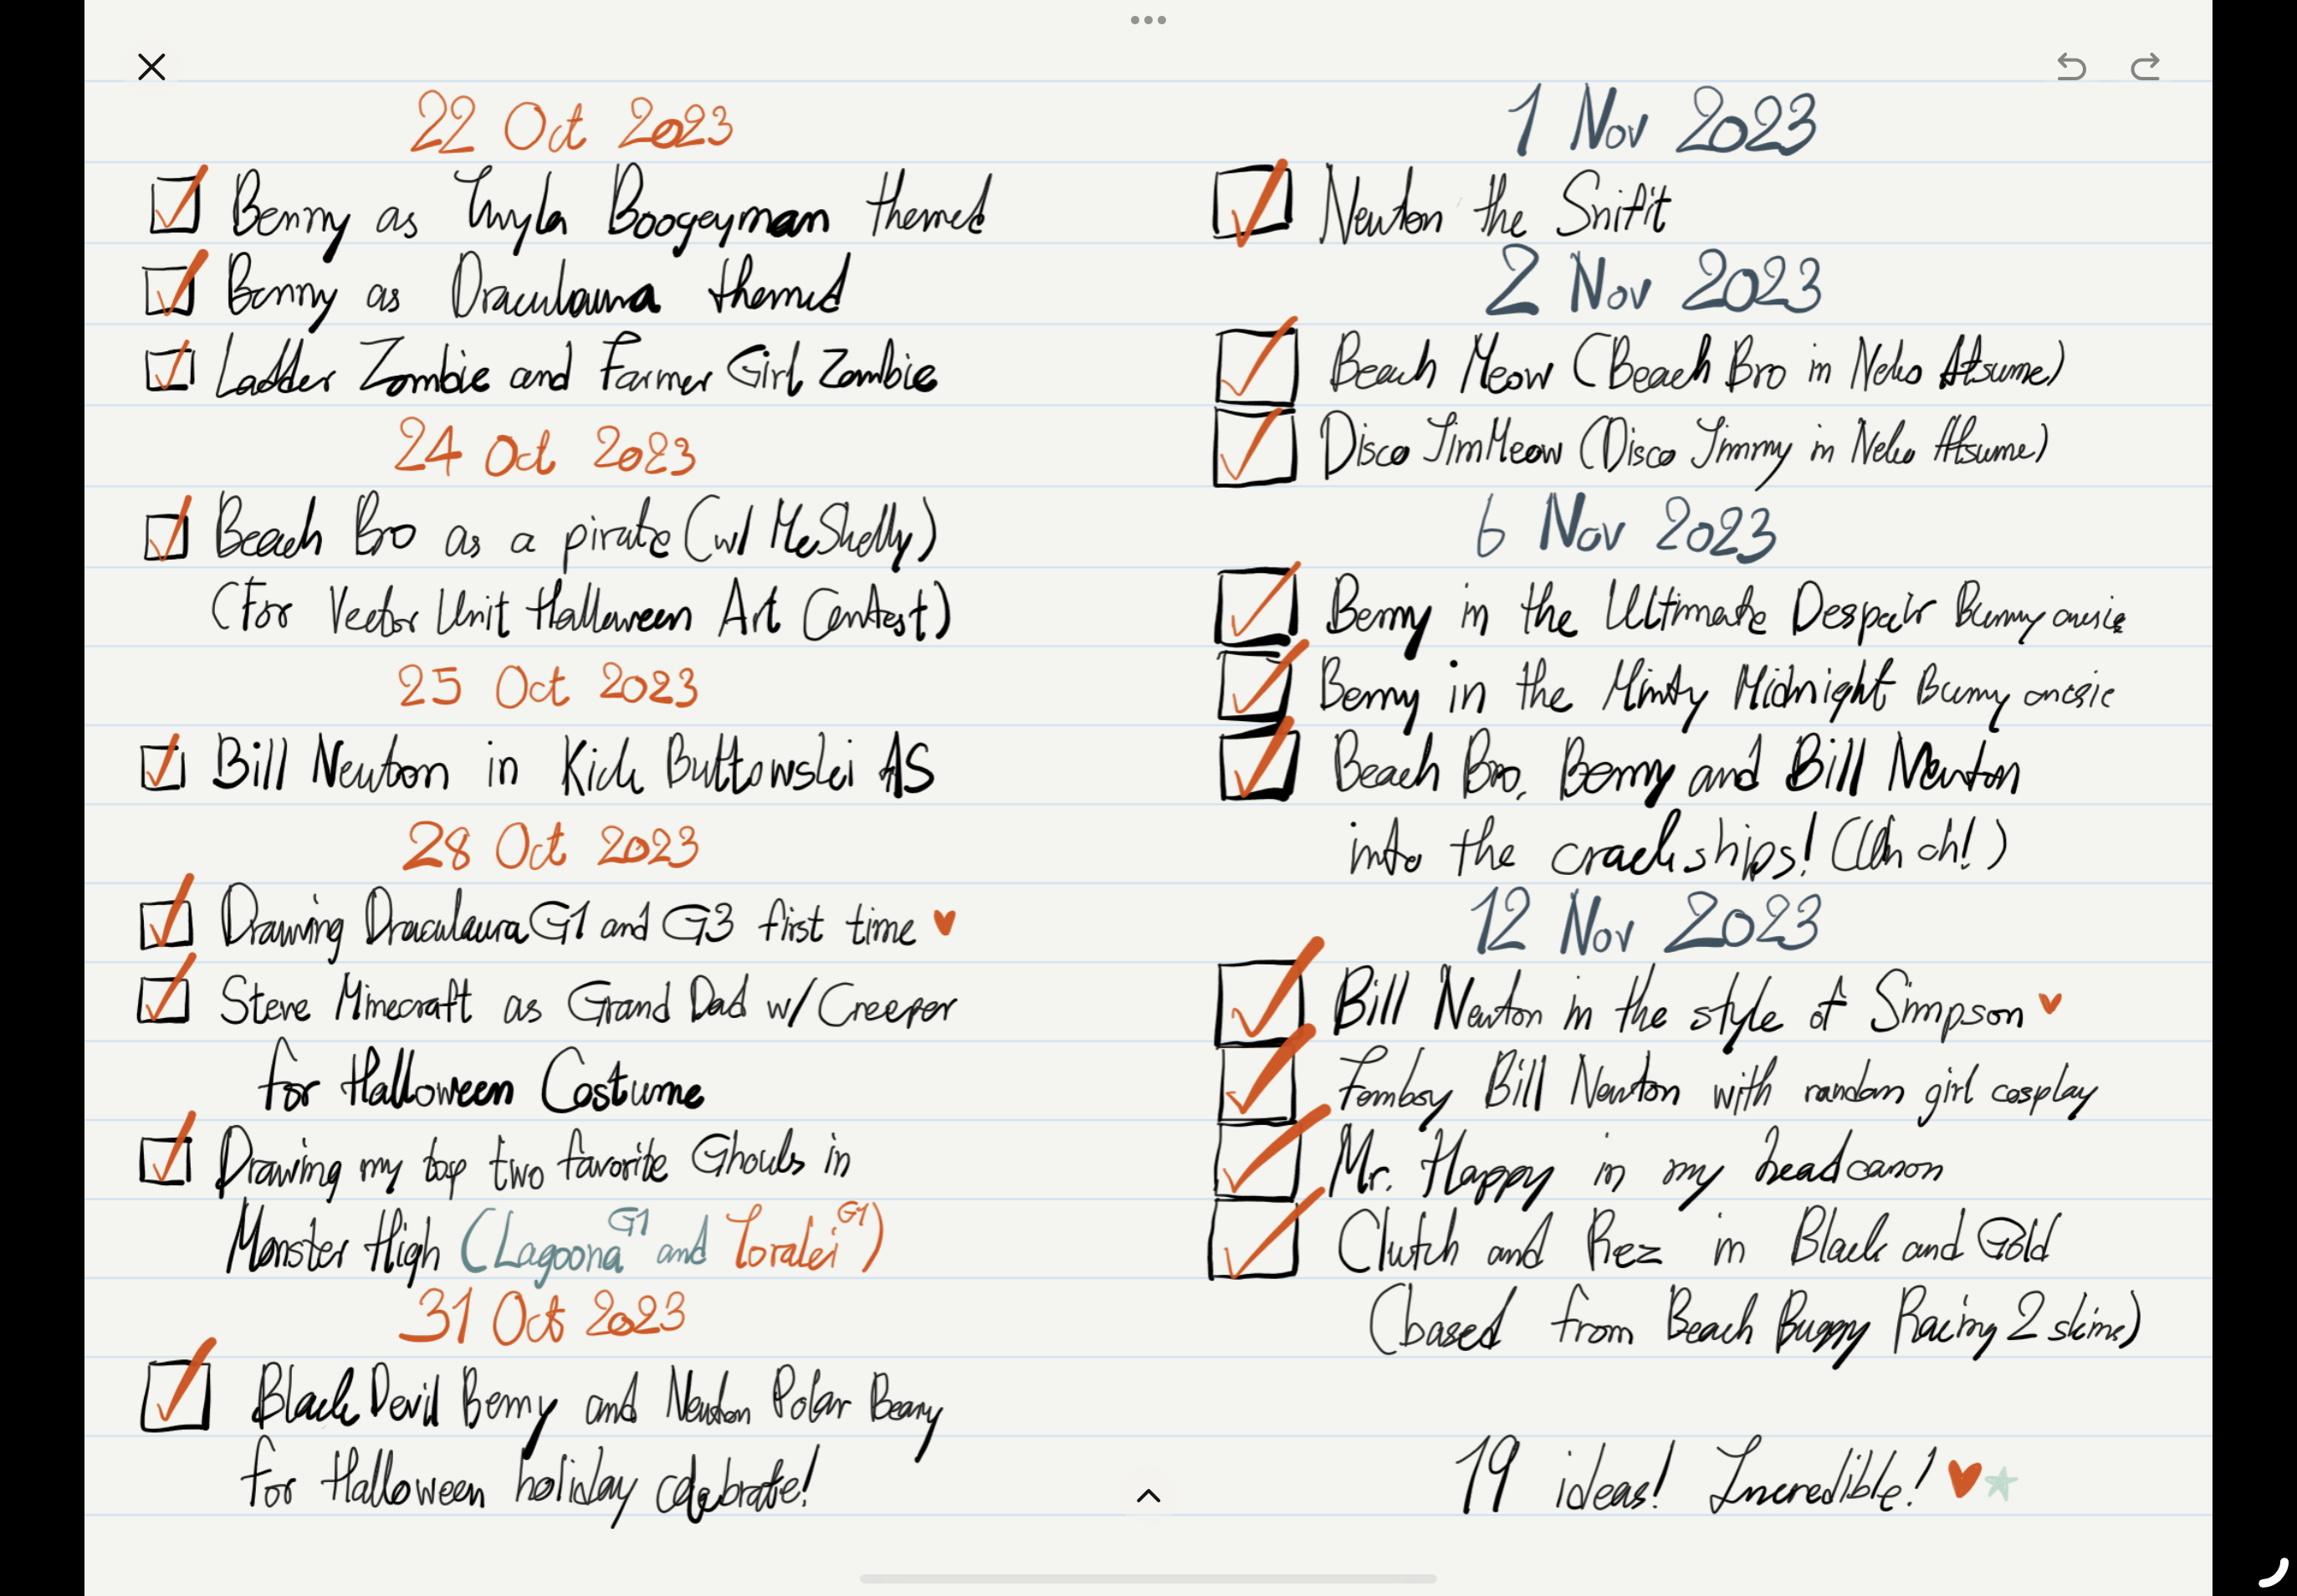 22 Oct 2023
Benny as Twyla Boogeyman themed
Benny as Draculaura themed
Ladder Zombie and Farmer Girl Zombie
24 Oct 2023
Beach Bro as a pirate (w/ McShelly)
(For Vector Unit Halloween Art Contest)
25 Oct 2023
Bill Newton in Kick Buttowski AS
28 Oct 2023
Drawing Draculaura G1 and G3 first time ♥
Steve Minecraft as Grand Dad w/ Creeper
for Halloween Costume
Drawing my top two favorite Ghouls in
Monster High (Lagoona G1 and Toralei G1)
31 Oct 2023
Black Devil Benny and Newton Polar Beary
for Halloween holiday celebrate!
1 Nov 2023
Newton the Snifit
2 Nov 2023
Beach Meow (Beach Bro in Neko Atsume)
Disco JimMeow (Disco Jimmy in Neko Atsume)
6 Nov 2023
Benny in the Ultimate Despair Bunny onesie
Benny in the Minty Midnight Bunny onesie
Beach Bro, Benny and Bill Newton
into the crackships! (Uh oh!)
12 Nov 2023
Bill Newton in the style of Simpson ♥
Femboy Bill Newton with random girl cosplay
Mr. Happy in my headcanon
Clutch and Rez in Black and Gold
(based from Beach Buggy Racing 2 skins)
19 ideas! Incredible! ♥★